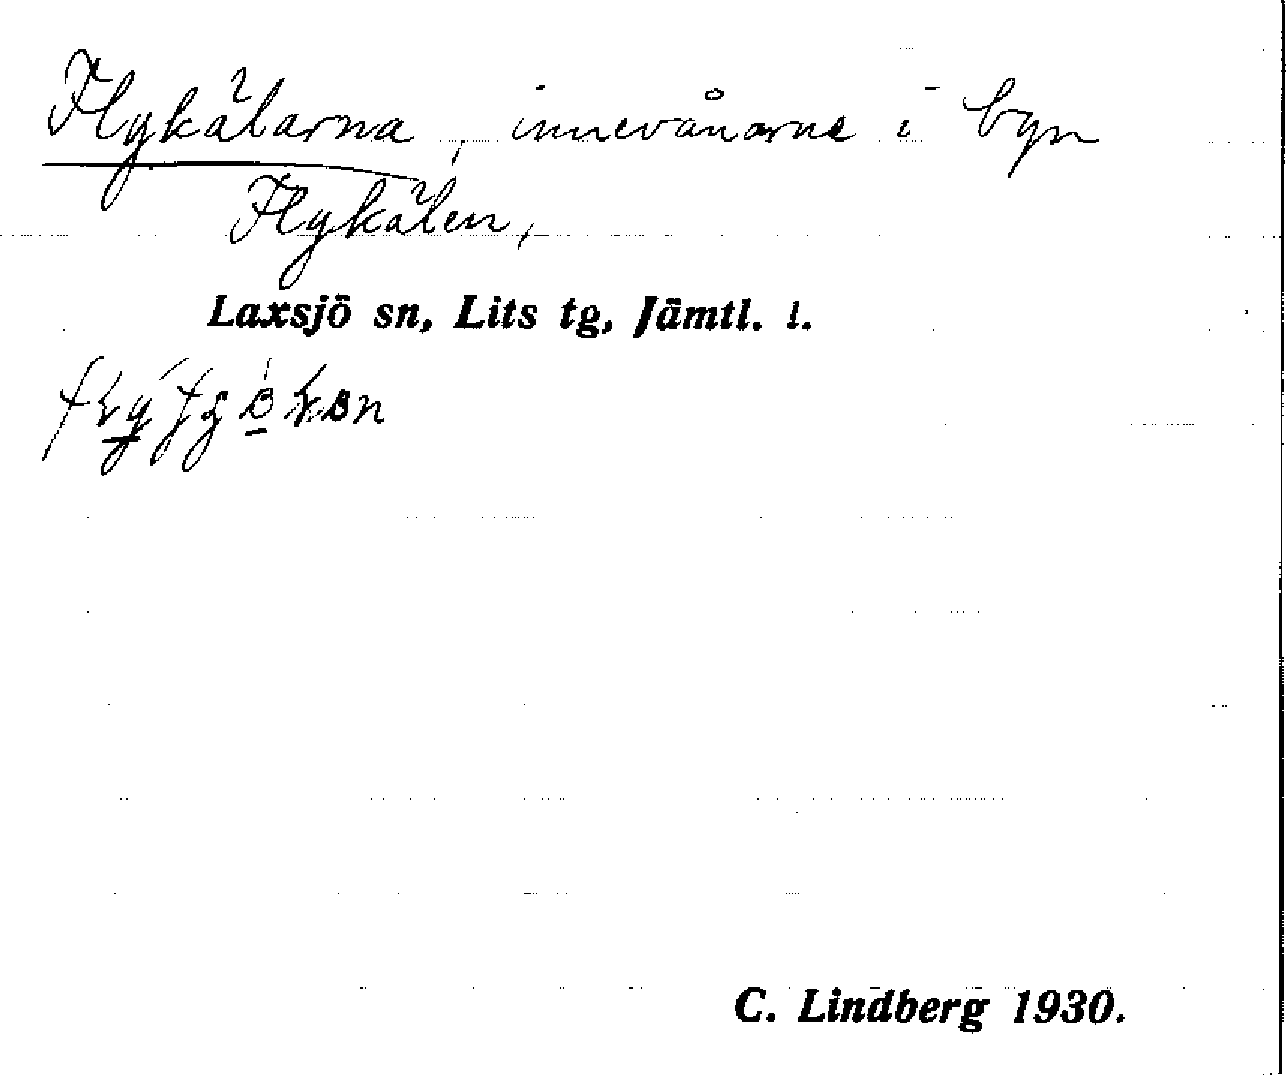 Flykälarna, innevånarne i byn
Flykälen,
Laxsjö sn, Lits tg, Jämtl. l.
C. Lindberg 1930.